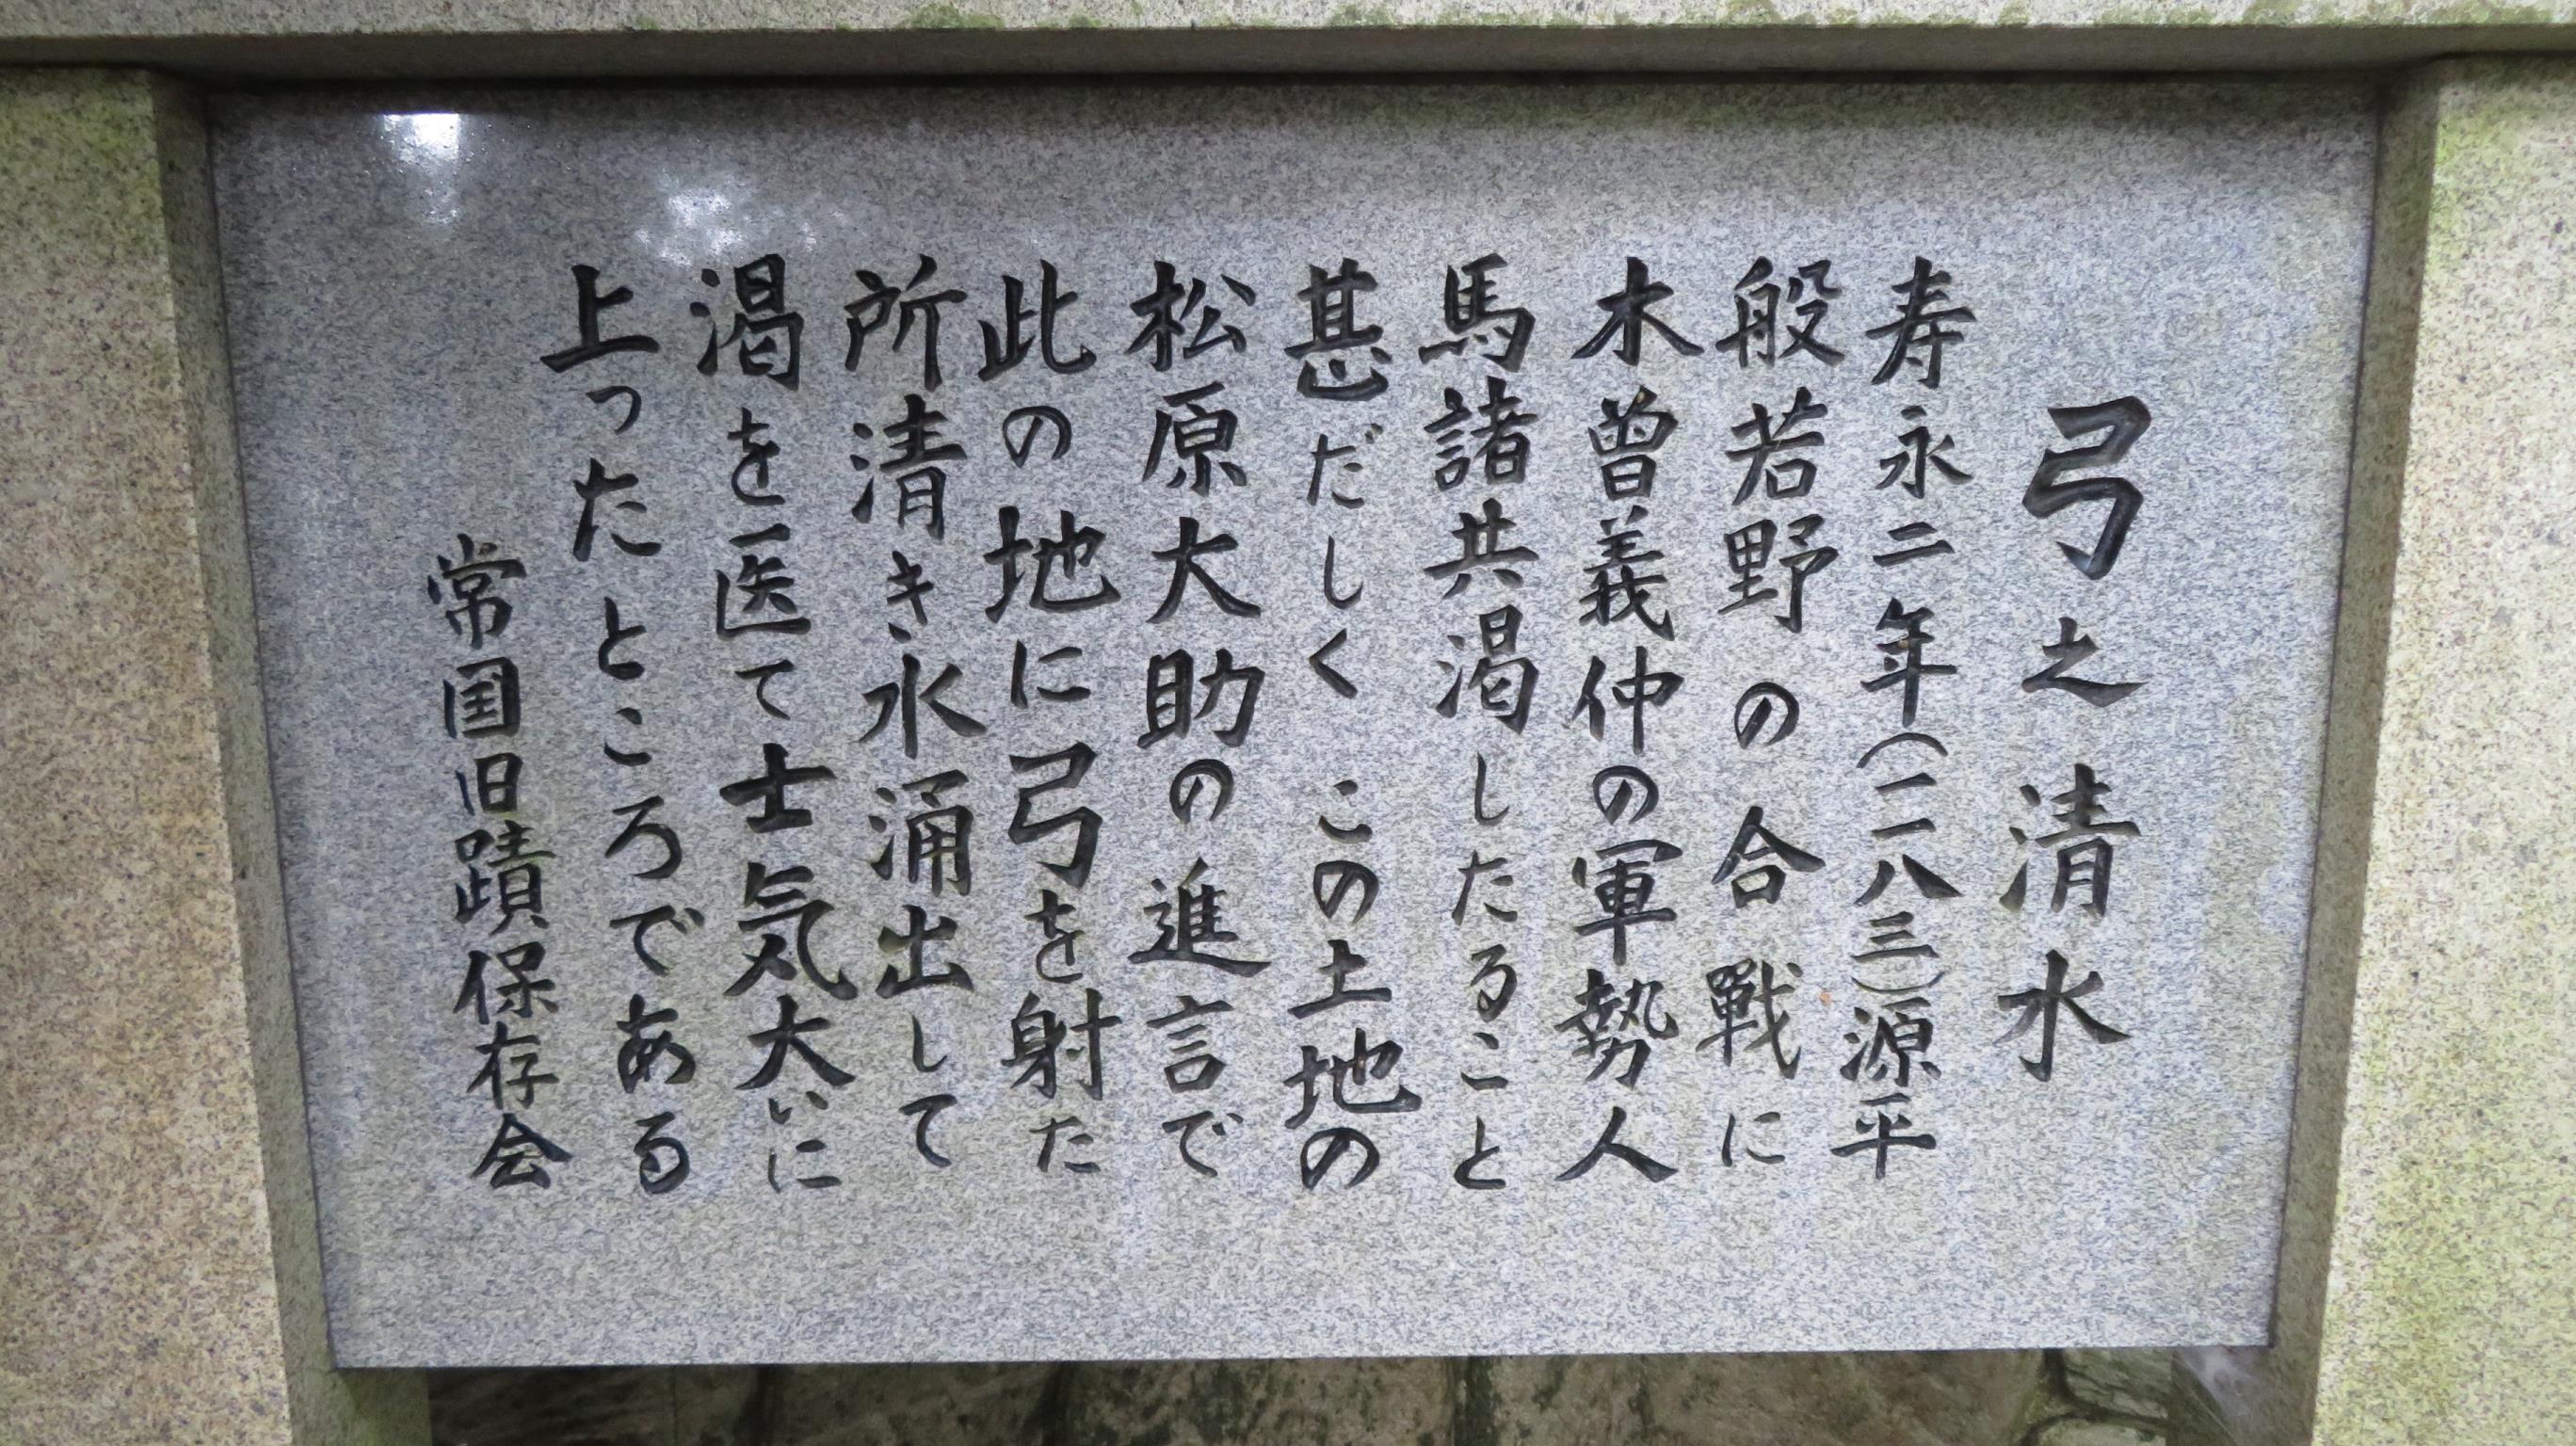 弓之清水
寿永二年(一一八三)源平
般若野の合戰に
木曾義仲の軍勢人
馬諸共渇したること
甚だしくこの土地の
松原大助の進言で
此の地に弓を射た
所清き水涌出して
渇を医て士気大いに
上ったところである
常国旧蹟保存会